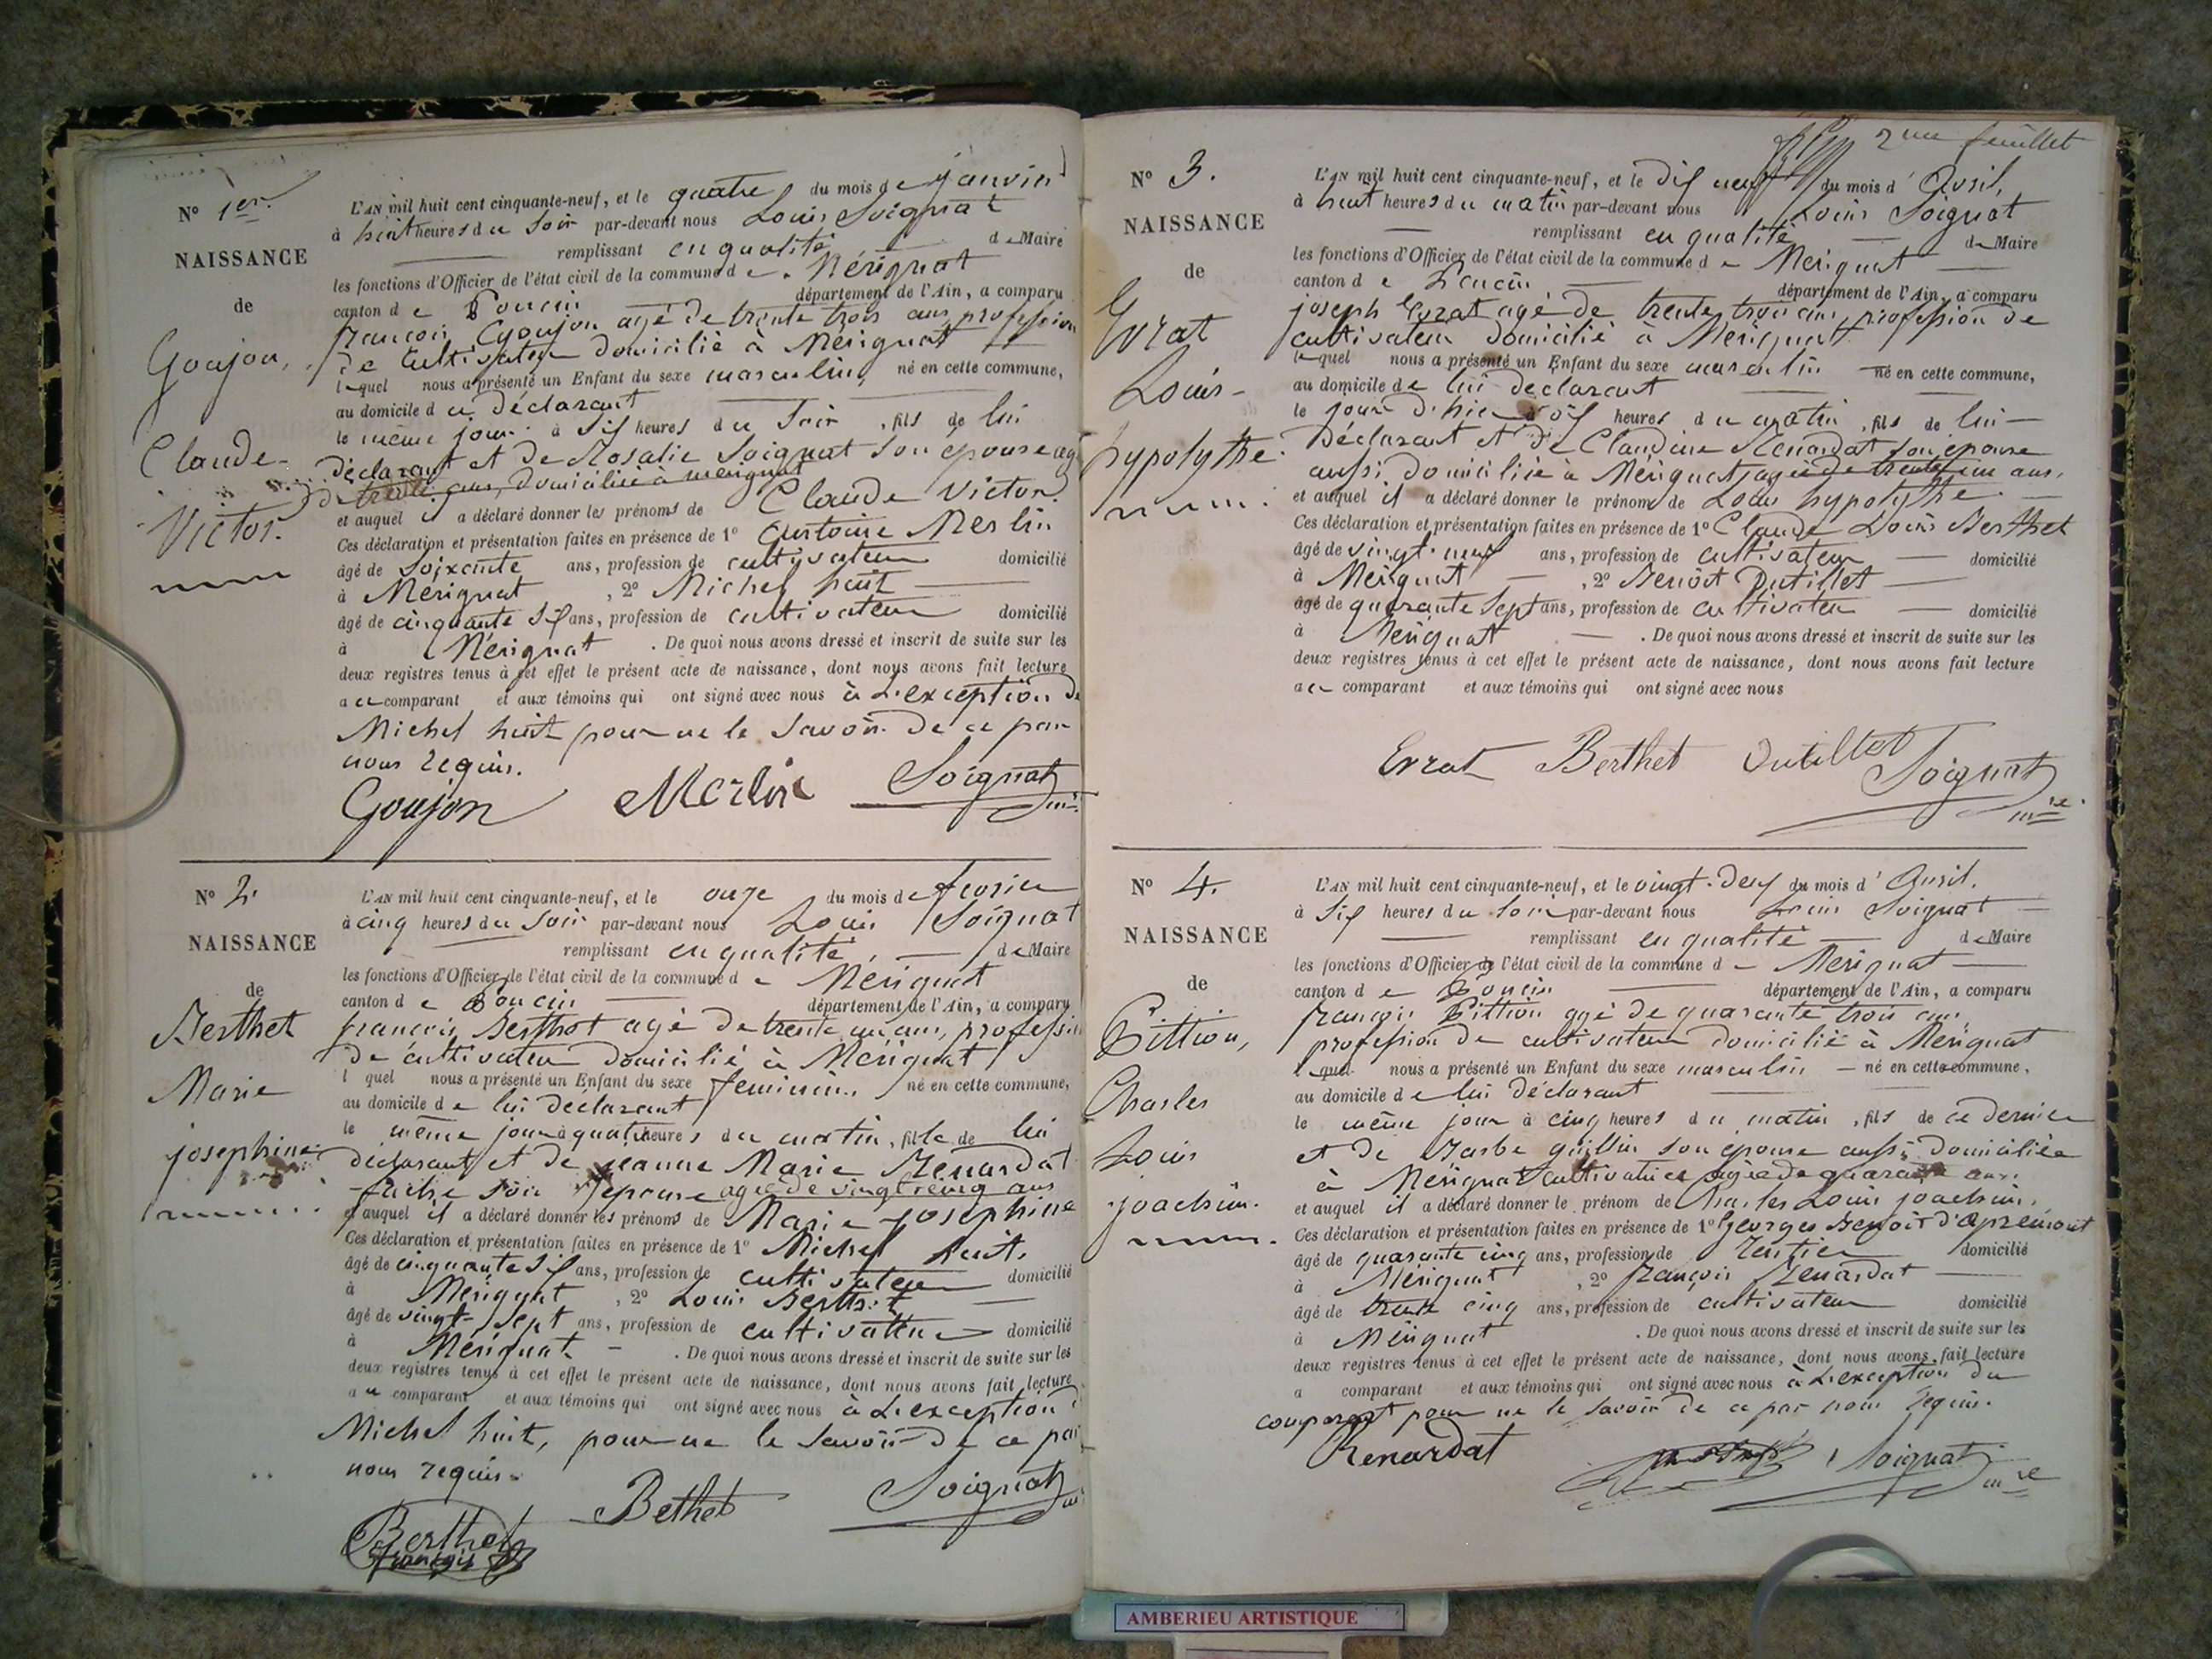 N° 1er.
NAISSANCE
de
Goujon,
Claude
Victor.
L'AN mil huit cent cinquante-neuf, et le quatre du mois de janvier
à huit heures du soir par-devant nous Louis Soignat
remplissant en qualité de Maire
les fonctions d'Officier de l'état civil de la commune de Mérignat
canton de Poncin département de l'Ain, a comparu
françois Goujon agé de trente trois ans, profession
de cultivateur domicilié à Mérignat
lequel nous a présenté un Enfant du sexe masculin, né en cette commune,
au domicile du déclarant
le même jour à six heures du soir, fils de lui
déclarant et de Rosalie Soignat son épouse agé
de trente ans, domiciliée à merignat
et auquel il a déclaré donner les prénoms de Claude Victor
Ces déclaration et présentation faites en présence de 1° Antoine Merlin
âgé de soixante ans, profession de cultivateur domicilié
à Mérignat, 2° Michel huit
âgé de cinquante six ans, profession de cultivateur domicilié
à Mérignat. De quoi nous avons dressé et inscrit de suite sur les
deux registres tenus à cet effet le présent acte de naissance, dont nous avons fait lecture
au comparant et aux témoins qui ont signé avec nous à L'exception de
Michel huit pour ne le savoir de ce par
nous requis.
Goujon Merlin Soignat
N° 2.
NAISSANCE
de
Berthet
Marie
josephine
L'AN mil huit cent cinquante-neuf, et le onze du mois de fevrier
à cinq heures du soir par-devant nous Louis Soignat
remplissant en qualité de Maire
les fonctions d'Officier de l'état civil de la commune de Mérignat
canton de Poncin département de l'Ain, a comparu
françois Berthet agé de trente un ans, profession
de cultivateur domicilié à Mérignat
l quel nous a présenté un Enfant du sexe feminin, né en cette commune,
au domicile de lui déclarant
le même jour à quatre heures du matin, fille de lui
déclarant et de jeanne Marie Renardat
son epouse agée de vingt cinq ans
et auquel il a déclaré donner les prénoms de Marie josephine
Ces déclaration et présentation faites en présence de 1° Michel huit
âgé de cinquante six ans, profession de cultivateur domicilié
à Mérignat, 2° Louis Berthet
âgé de vingt sept ans, profession de cultivateur domicilié
à Mérignat. De quoi nous avons dressé et inscrit de suite sur les
deux registres tenus à cet effet le présent acte de naissance, dont nous avons fait lecture
au comparant et aux témoins qui ont signé avec nous à L'exception
Michel huit, pour ne le savoir de ce par
nous requis
Bethet Soignat
Berthet
françois
2me feuillet
N° 3.
NAISSANCE
de
Evrat
Louis
hypolythe
L'AN mil huit cent cinquante-neuf, et le dix neuf du mois d'Avril,
à huit heures du matin par-devant nous Louis Soignat
remplissant en qualité de Maire
les fonctions d'Officier de l'état civil de la commune de Mérignat
canton de Poncin département de l'Ain, a comparu
joseph Evrat agé de trente trois ans, profession de
cultivateur domicilié à Mérignat
lequel nous a présenté un Enfant du sexe masculin né en cette commune,
au domicile de lui declarant
le jour d'hier à dix heures du matin, fils de lui
Déclarant et de Claudine Renardat son epouse
aussi domiciliée à Mérignat, agée de trente un ans,
et auquel il a déclaré donner le prénom de Louis hypolythe
Ces déclaration et présentation faites en présence de 1° Claude Louis Berthet
âgé de vingt neuf ans, profession de cultivateur domicilié
à Mérignat, 2° Benoît Dutillet
âgé de quarante sept ans, profession de cultivateur domicilié
à Mérignat. De quoi nous avons dressé et inscrit de suite sur les
deux registres tenus à cet effet le présent acte de naissance, dont nous avons fait lecture
au comparant et aux témoins qui ont signé avec nous
Evrat Berthet Dutillet Soignat
mre
N° 4.
NAISSANCE
de
Pittion,
Charles
Louis
joachim.
L'AN mil huit cent cinquante-neuf, et le vingt-deux du mois d'Avril.
à six heures du soir par-devant nous Louis Soignat
remplissant en qualité de Maire
les fonctions d'Officier de l'état civil de la commune de Mérignat
canton de Poncin département de l'Ain, a comparu
françois Pittion agé de quarante trois ans
profession de cultivateur domicilié à Mérignat
lequel nous a présenté un Enfant du sexe masculin né en cette commune,
au domicile de lui déclarant
le même jour à cinq heures du matin, fils de ce dernier
et de Barbe guillin son epouse aussi domiciliée
à Mérignat cultivatrice agée de quarante ans.
et auquel il a déclaré donner le prénom de Charles Louis joachim.
Ces déclaration et présentation faites en présence de 1° Georges Benoit d'Apremont
âgé de quarante cinq ans, profession de Rentier domicilié
à Mérignat, 2° françois Renardat
âgé de trente cinq ans, profession de cultivateur domicilié
à Mérignat. De quoi nous avons dressé et inscrit de suite sur les
deux registres tenus à cet effet le présent acte de naissance, dont nous avons fait lecture
a comparant et aux témoins qui ont signé avec nous à L'exception du
comparant pour ne le savoir de ce par nous requis.
Renardat Soignat
mre
AMBERIEU ARTISTIQUE